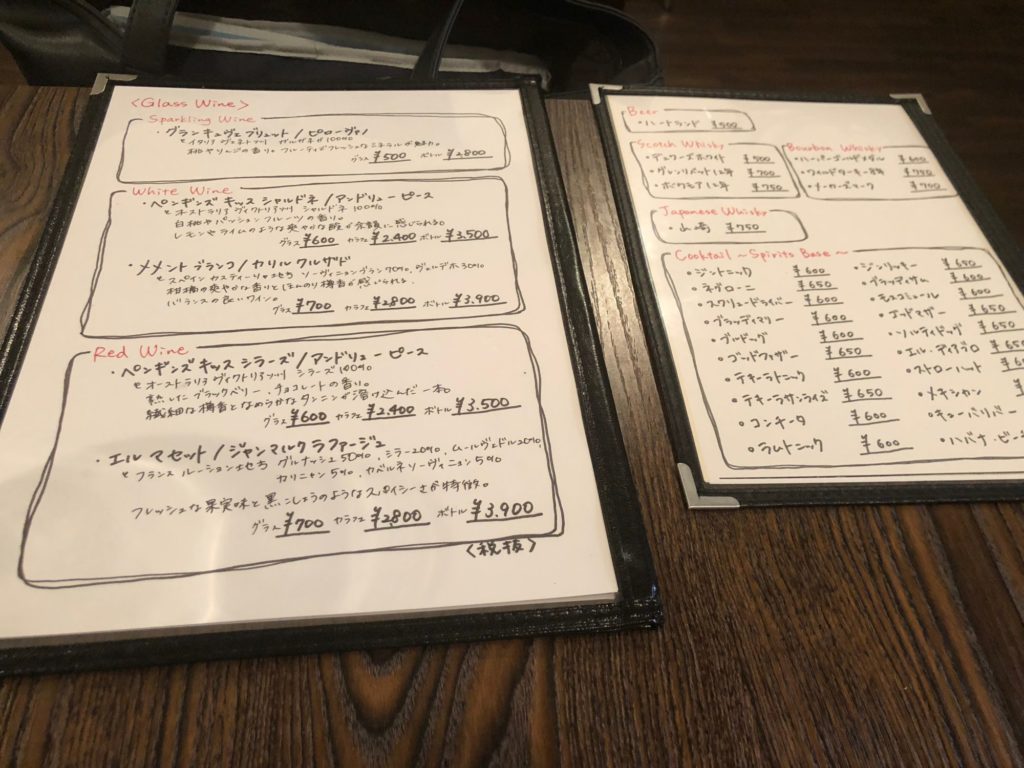 〈Glass Wine〉
Sparkling Wine
・グランキュヴェブリュット/ピローヴァノ
イタリア ヴェネト州 ガルガネガ100%
桃やりんごの香り。フルーティでフレッシュなミネラルが魅力。
グラス ¥500 ボトル ¥2,800
White Wine
・ペンギンズ キッス シャルドネ/アンドリュー ピース
オーストラリア ヴィクトリア州 シャルドネ 100%
白桃やパッションフルーツの香り。
レモンやライムのような爽やかな酸が余韻に感じられる。
グラス ¥600 カラフェ ¥2,400 ボトル ¥3,500
・メメント ブランコ/カリル クルサド
スペイン カスティーリャ ソーヴィニョンブラン70%、ヴェルデホ30%
柑橘の爽やかな香りとほんのり樽香が感じられる
バランスの良いワイン。
グラス ¥700 カラフェ ¥2,800 ボトル ¥3,900
Red Wine
・ペンギンズ キッス シラーズ/アンドリュー ピース
オーストラリア ヴィクトリア州 シラーズ 100%
熟したブラックベリー、チョコレートの香り。
繊細な樽香となめらかなタンニンが溶け込んだ一本。
グラス ¥600 カラフェ ¥2,400 ボトル ¥3,500
・エル マセット/ジャンマルク ラファージュ
フランス ルーション グルナッシュ 50%、シラー20%、ムールヴェドル20%、
カリニャン 5%、カベルネソーヴィニョン 5%
フレッシュな果実味と黒こしょうのようなスパイシーさが特徴。
グラス ¥700 カラフェ ¥2,800 ボトル ¥3,900
〈税抜〉
Beer
・ハートランド ¥500
Scotch Whisky
・デュワーズホワイト ¥500
・グレンリベット12年 ¥700
・ボウモア12年 ¥750
Bourbon Whisky
・ハーパーゴールドメダル ¥600
・ワイルドターキー8年 ¥750
・メーカーズマーク ¥700
Japanese Whisky
・山崎 ¥750
Cocktail ~Spirits Base~
・ジントニック ¥600
・ネグローニ ¥650
・スクリュードライバー ¥600
・ブラッディマリー ¥600
・ブルドッグ ¥600
・ゴッドファザー ¥650
・テキーラトニック ¥600
・テキーラサンライズ ¥650
・コンチータ ¥600
・ラムトニック ¥600
・ジンリッキー ¥650
・ブラッディサム ¥600
・モスコミュール ¥600
・ゴッドマザー ¥650
・ソルティドッグ ¥650
・エル・ディアブロ ¥65
・ストローハット ¥65
・メキシカン
・キューバリバー
・ハバナ・ビー